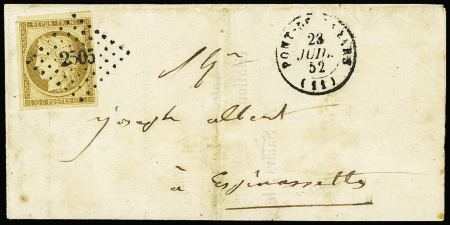 REPUB. FRANC.
2505
10 C. POSTES 10 C.
23
JUIL.
52
(11)
Mr
joseph albert
à Espinassette